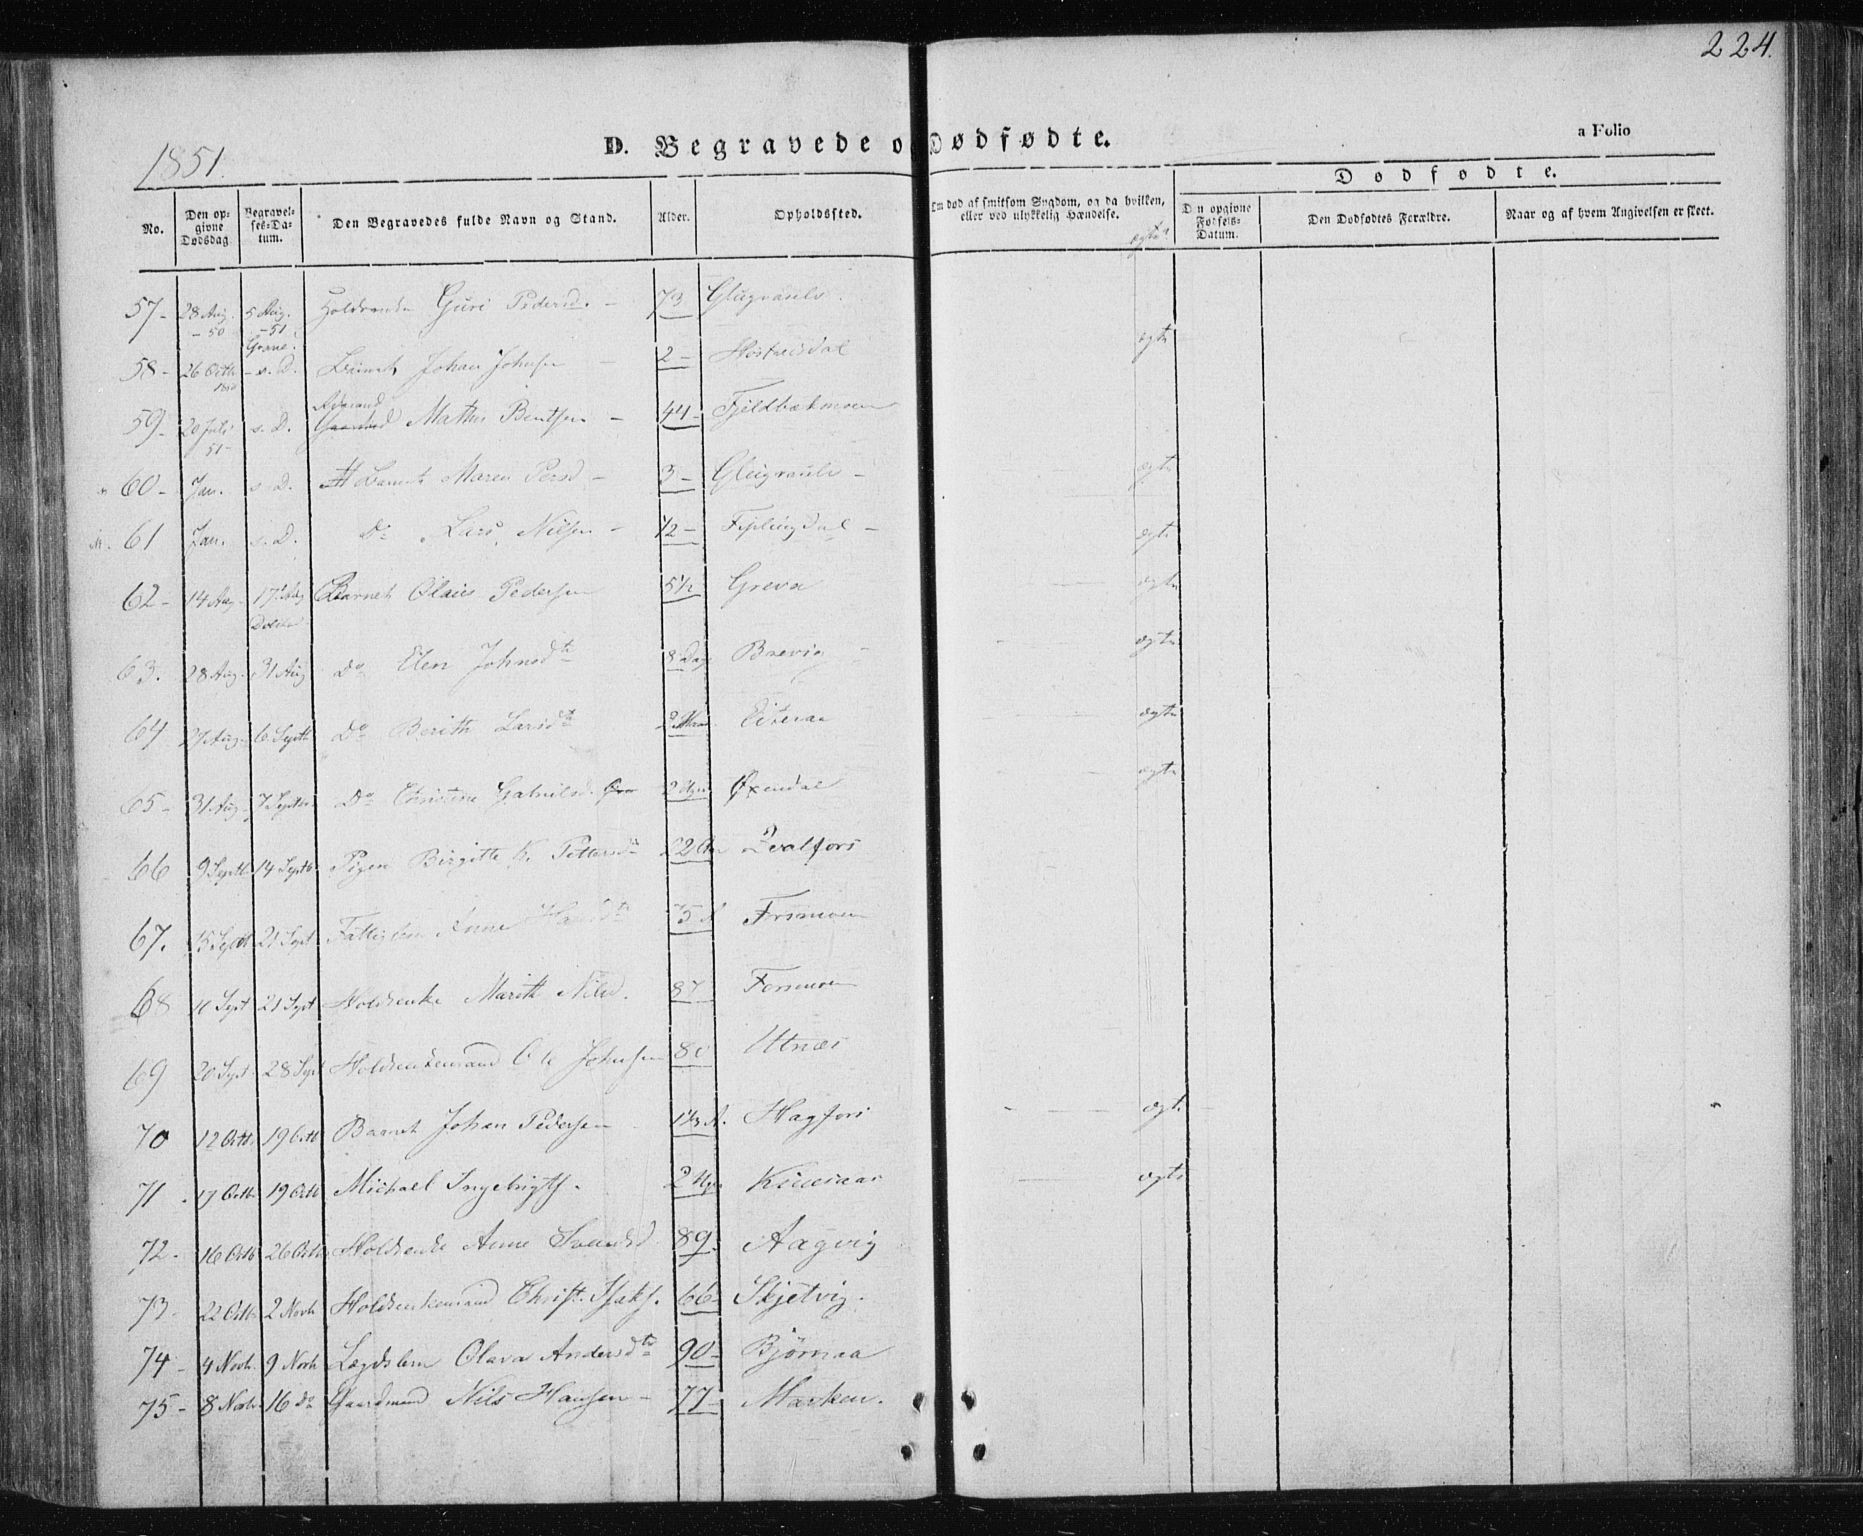 224.
1851.
D. Begravede o Dødfødte.
a Folio
No.
Den opgivne Dødsdag
Begravelses-Datum.
Den Begravedes fulde Navn og Stand.
Alder.
Opholdssted.
Om død af smitsom Sygdom, og da hvilken, eller ved ulykkelig Hændelse.
Dødfødte.
Den opgivne Fødsels-Datum.
Den Dødfødtes Forældre.
Naar og af hvem Angivelsen er skeet.
57- 28 Aug. -50 5 Aug. -51 Guri Pedersd. - 73
58- 26 Octb 1850 s. D. Barnet Johan Johnsen - 2 - ægte
59- 20 Juli 51- s. D. Mathis Bentsen - 44- Fjeldbækmoen
60- Jan. s. D. Barnet Maren Persd - 3- ægte
61 Jan. s. D. Do Lars Nilsen - 1/2- Fiplingdal - ægte
62- 14 Aug- 17 Aug Barnet Olaus Pedersen 5 1/2 Greva ægte
63. 28 Aug. 31 Aug Do Elen Johnsdtr 8 Dag Brevig ægte
64 27 Aug. 6 Septb Do Berith Larsdtr Eiteraa ægte
65- 31 Aug. 7 Septbr. Do Christine Gabrielsd. 2 Ugr Øxendal ægte
66 9 Septb 14 Septb. Pigen Birgitte K. Pettersdtr 22 Aar Svalfors
67. 15 Septb 21 Sept Fattiglem Anne 75 A Forsmoen
68 11 Sept 21 Sept Holdsenke Marith Nilsd. 87 Forsmoen
69 20 Sept. 28 Sept Holdsenkemand Ole Johnsen 80 Utnæs
70 12 Octb. 19 Octb Barnet Johan Pedersen 1 1/3 A. Hagfors ægte
71. 17 Octb 19 Octb Michael Ingebrigts. 2 Ugr ægte
72- 16 Octb 26 Octb Holdsenke Anne Svendsd 89. Aagvig
73- 22 Octb 2 Novb. Holdsenkemand Christ. Isaks. 66- Skjetvig.
74- 4 Novb. 9 Novb. Lægdslem Olava Andersdtr 90- Bjørnaa
75- 8 Novb. 16 Do Gaardmand Nils Hansen - 77- Marken.